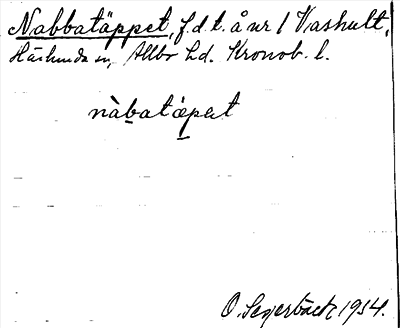 Nabbatäppet, f.d.t. å nr 1 Vashult,
Härlunda sn, Allbo hd. Kronob. l.
nàbatäpat
O. Segerbäck 1954.